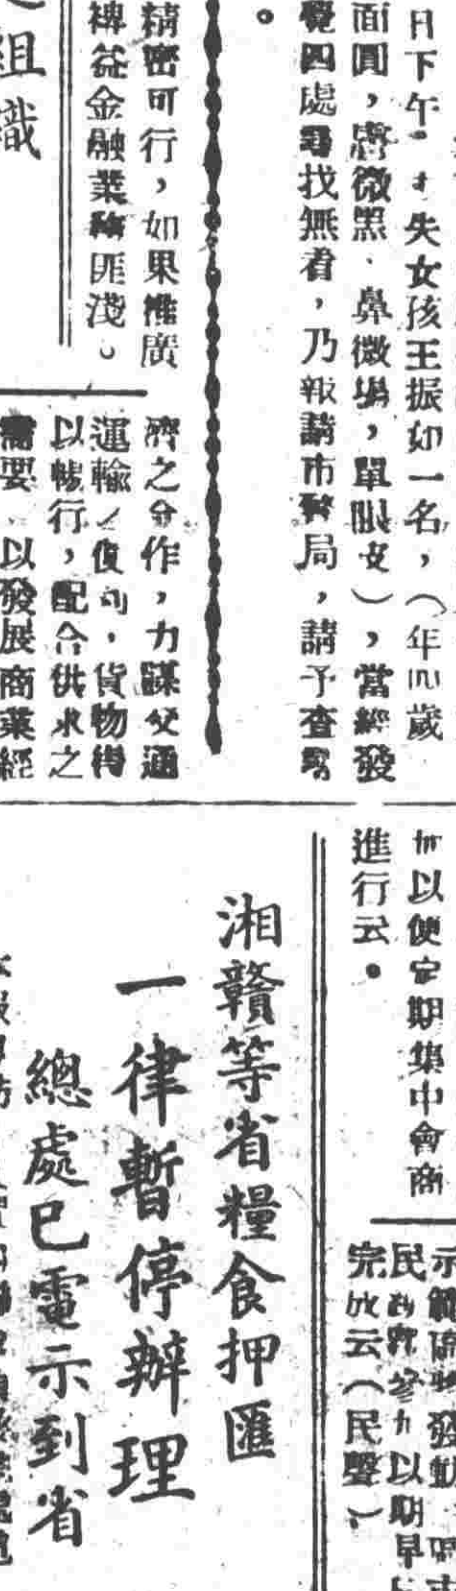 日下午。走失女孩王振如一名，（年四歲
面圓，膚微黑，鼻微塌，單眼皮），當經發
覺四處尋找無着，乃報請市警局，請予查尋
。
精密可行，如果推廣
裨益金融業務匪淺。
組織
濟之合作，力謀交通
運輸之復員，貨物得
以暢行，配合供求之
需要，以發展商業經
加以便定期集中會商
進行云。
民政廳參加以期早
完成云（民聲）
湘贛等省糧食押匯
一律暫停辦理
總處已電示到省